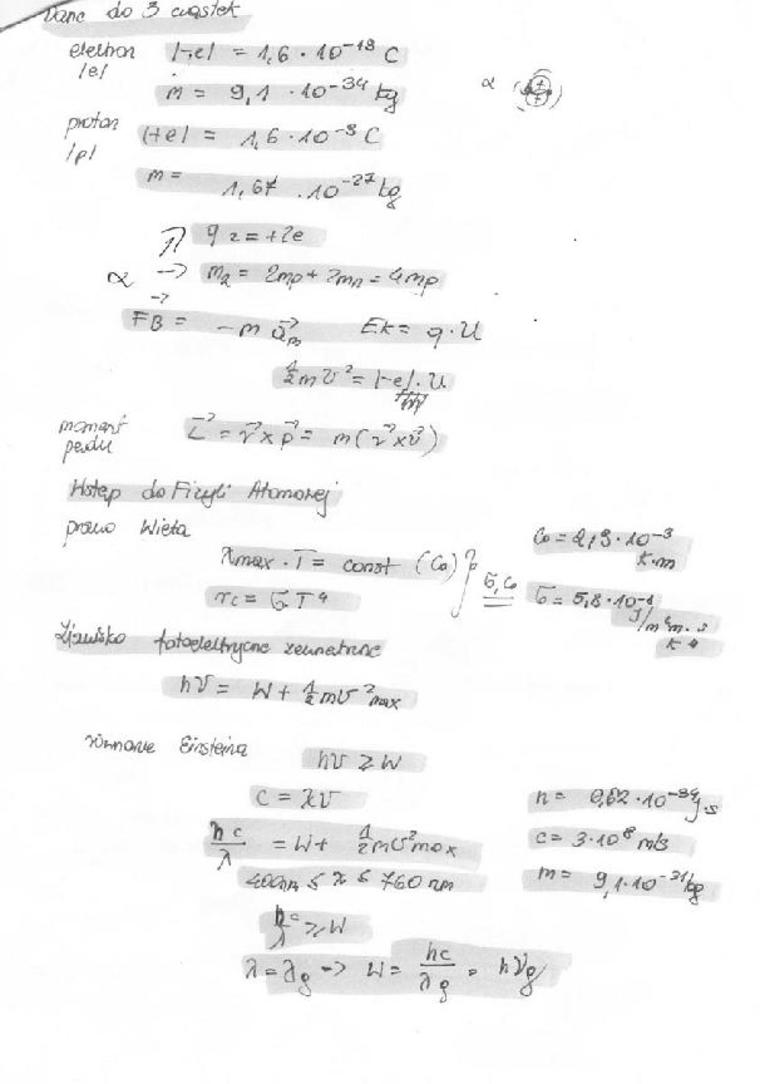 Dane do 3 cząstek
elektron |-e| = 1,6 · 10⁻¹⁹ C
/e/
m = 9,1 · 10⁻³⁴ kg
α
proton |+e| = 1,6 · 10⁻⁹ C
/p/
m = 1,67 · 10⁻²⁷ kg
q₂ = +2e
α → m₂ = 2mp + 2mn = 4mp
F⃗B = -m a⃗ₘ Ek = q · U
½mv² = |-e| · U
moment pędu L⃗ = r⃗ × p⃗ = m(r⃗ × v⃗)
Wstęp do Fizyki Atomowej
prawo Wiena
λmax · T = const (C₀)
C₀ = 2,9 · 10⁻³ K·m
rc = σT⁴
σ, C₀
σ = 5,8 · 10⁻⁸
Zjawisko fotoelektryczne zewnętrzne
hν = W + ½mv²max
równanie Einsteina
hν ≥ W
c = λν
h = 6,62 · 10⁻³⁴ J·s
hc/λ = W + ½mv²max
c = 3 · 10⁸ m/s
400nm ≤ λ ≤ 760 nm
m = 9,1 · 10⁻³¹ kg
hc/λ ≥ W
λ = λg → W = hc/λg = hνg